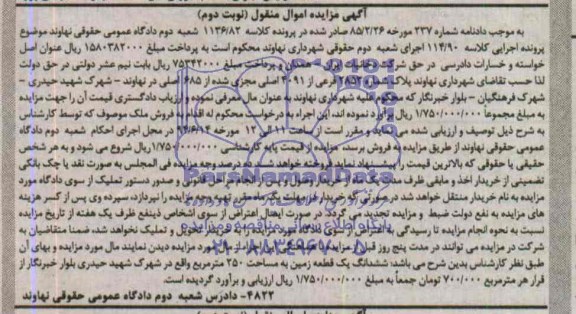 آگهی مزایده اموال منقول (نوبت دوم)
به موجب دادنامه شماره ۲۳۷ مورخه ۸۵/۲/۲۶ صادر شده در پرونده کلاسه ۱۱۳۶/۸۲ شعبه دوم دادگاه عمومی حقوقی نهاوند موضوع
پرونده اجرایی کلاسه ۱۱۴/۹۰ اجرای شعبه دوم حقوقی شهرداری نهاوند محکوم است به پرداخت مبلغ ۱۵۸۰۳۸۲۰۰۰ ریال عنوان اصل
خواسته و خسارات دادرسی در حق شرکت همدان و پرداخت مبلغ ۷۵۳۴۲۰۰۰ ریال بابت نیم عشر دولتی در حق دولت
لذا حسب تقاضای شهرداری نهاوند پلاک شماره ۲۸۵۲ فرعی از ۴۰۹۱ اصلی مجزی شده از ۶۸۵ اصلی در نهاوند – شهرک شهید حیدری –
شهرک فرهنگیان – بلوار خبرنگار که محکوم علیه شهرداری نهاوند به عنوان مال معرفی نموده و ارزیاب دادگستری قیمت آن را جهت مزایده
به مبلغ مجموعاً ۱/۷۵۰/۰۰۰/۰۰۰ ریال برآورد نموده اند، این اجراء به درخواست محکوم له اقدام به فروش ملک موصوف که توسط کارشناس
به شرح ذیل توصیف و ارزیابی شده می نماید و مقرر است از ساعت ۱۱ الی ۱۲ مورخه ۹۴/۶/۱۴ در محل اجرای احکام شعبه دوم دادگاه
عمومی حقوقی نهاوند از طریق مزایده به فروش برسد، مزایده از قیمت پایه کارشناسی ۱/۷۵۰/۰۰۰/۰۰۰ ریال شروع می شود و به هر شخص
حقیقی یا حقوقی که بالاترین قیمت را پیشنهاد نماید فروخته خواهد شد، ده درصد وجه مزایده فی المجلس به صورت نقد یا چک بانکی
تضمینی از خریدار اخذ و مابقی ظرف مدت یک ماه از خریدار وصول و پس از انجام مراحل قانونی و صدور دستور تملیک از سوی دادگاه مورد
مزایده به نام خریدار منتقل خواهد شد در صورتی که خریدار ظرف مهلت یک ماه مقرر بهای مورد مزایده را نپردازد، سپرده وی پس از کسر هزینه
های مزایده به نفع دولت ضبط و مزایده تجدید می گردد. در صورت اهمال اعتراض از سوی اشخاص ذینفع ظرف یک هفته از تاریخ مزایده
نسبت به نحوه انجام مزایده تا رسیدگی به اعتراض از سوی دادگاه مورد مزایده به خریدار تحویل و تملیک نخواهد شد، ضمنا متقاضیان به
شرکت در مزایده می توانند در مدت پنج روز قبل از مزایده از مال مورد مزایده دیدن نمایند مال مورد مزایده و بهای آن
طبق نظر کارشناس بدین شرح می باشد: ششدانگ یک قطعه زمین به مساحت ۲۵۰ مترمربع واقع در شهرک شهید حیدری بلوار خبرنگار از
قرار هر مترمربع ۷۰۰/۰۰۰ تومان جمعاً به مبلغ ۱/۷۵۰/۰۰۰/۰۰۰ ریال ارزیابی و برآورد گردیده است.
۴۸۲۲– دادرس شعبه دوم دادگاه عمومی حقوقی نهاوند
ParsNamadData